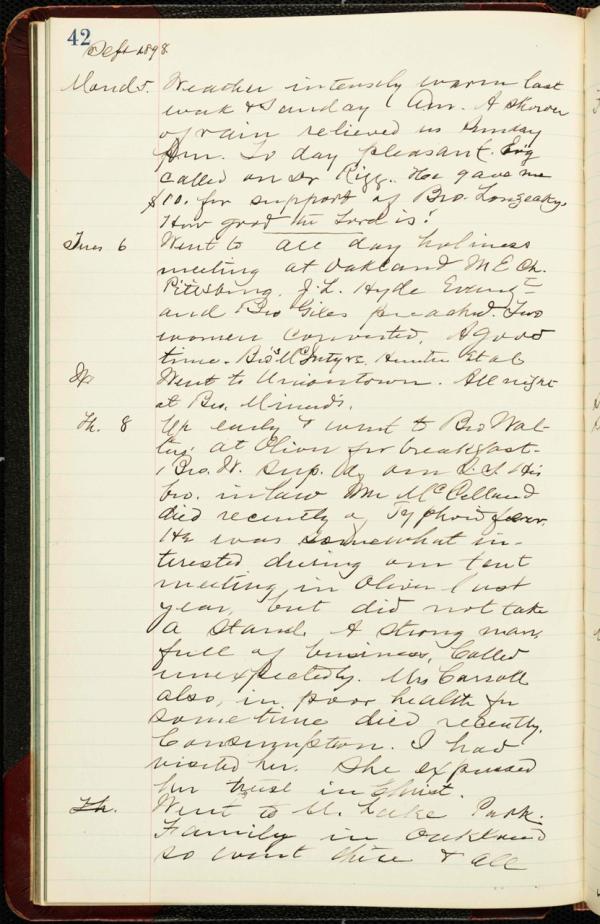 42
Sept 1898
Mond 5. Weather intensely warm last
week & Sunday Am. A shower
of rain relieved us Sunday
Pm. To day pleasant. Ev'g
called on Dr Rigg. He gave me
$10. for support of Bro.
How good the Lord is!
Tues 6 Went to all day holiness
meeting at Oakland M E Ch.
Pittsburg. J. L. Hyde Evangt
and Bro Giles preached. Two
women converted. A good
time. Bro's McIntyre, Hunter et al
W. Went to Uniontown. All night
at Bro. Minerd's.
Th. 8 Up early & went to Bro Wal-
ters' at Oliver for breakfast.
Bro. W. sup. of our S. S. His
bro. in law Wm McClelland
died recently of Typhoid fever.
He was somewhat in-
terested during our tent
meeting in Oliver last
year, but did not take
a stand. A strong man,
full of business, Called
unexpectedly. Mrs Carroll
also, in poor health for
some time died recently.
Consumpton. I had
visited her. She expressed
her trust in Christ.
Th. Went to Mt. Lake Park.
Family in Oakland
so went there & all